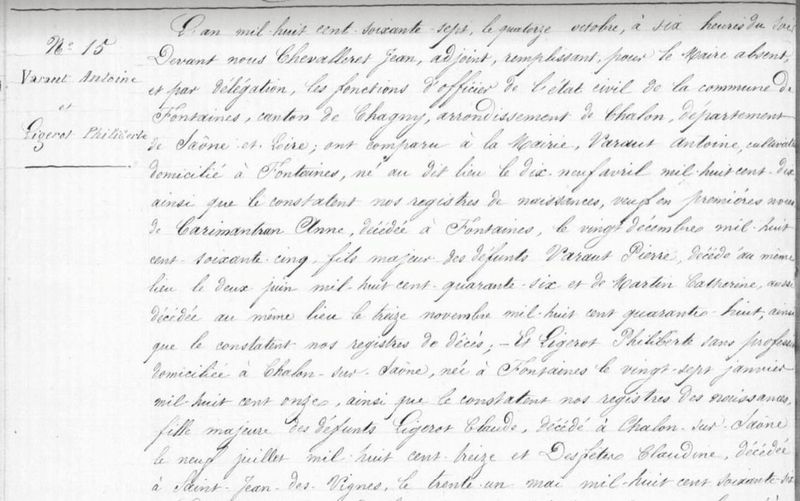 N° 15
Varaut Antoine
et
Ligerot Philiberte
L'an mil huit cent soixante sept, le quatorze octobre, à six heures du soir
Devant nous Chevalleret Jean, adjoint, remplissant, pour le Maire absent,
et par délégation, les fonctions d'officier de l'état civil de la commune de
Fontaines, canton de Chagny, arrondissement de Chalon, département
de Saône et Loire; ont comparu à la Mairie, Varaut Antoine, cultivat
domicilié à Fontaines, né au dit lieu le dix neuf avril mil huit cent dix
ainsi que le constatent nos registres de naissances, veuf en premières noces
de Carimantran Anne, décédée à Fontaines, le vingt décembre mil huit
cent soixante cinq, fils majeur des défunts Varaut Pierre, décédé au même
lieu le deux juin mil huit cent quarante six et de Martin Catherine, aussi
décédée au même lieu le treize novembre mil huit cent quarante huit, ainsi
que le constatent nos registres de décès; - Et Ligerot Philiberte sans profession
domiciliée à Chalon-sur-Saône, née à Fontaines le vingt sept janvier
mil huit cent onze, ainsi que le constatent nos registres des naissances,
fille majeure des défunts Ligerot Claude, décédé à Chalon-sur-Saône
le neuf juillet mil huit cent treize et Desfêtes Claudine, décédée
à Saint-Jean-des-Vignes, le trente un mai mil huit cent soixante six